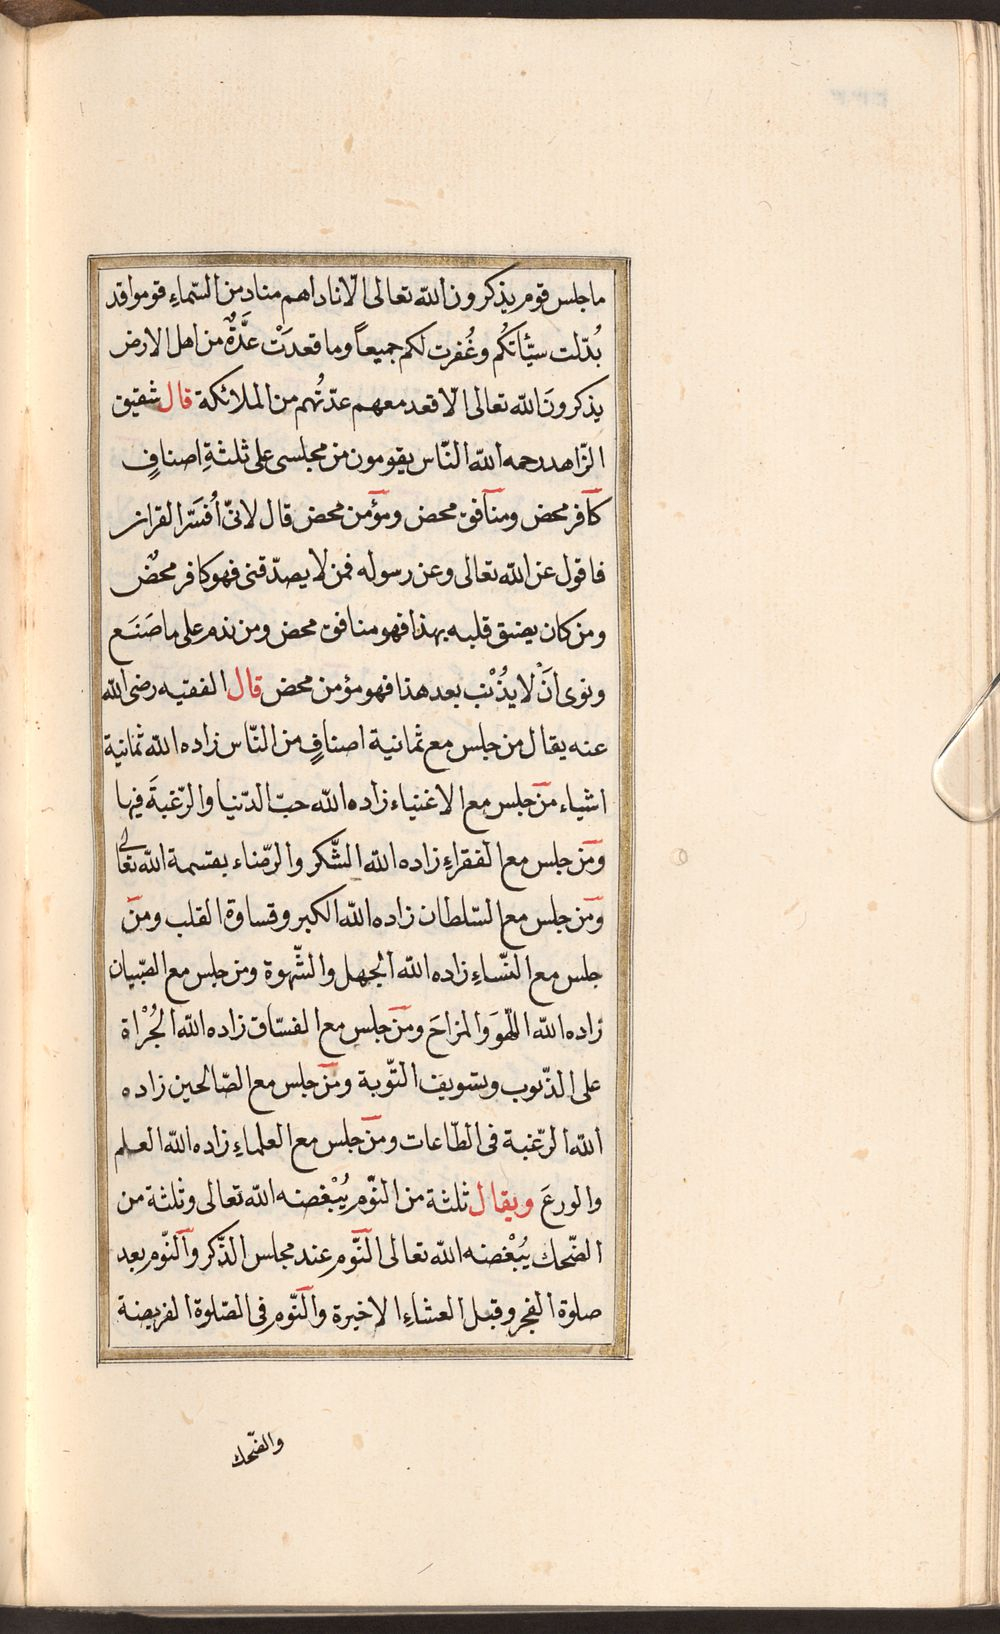 ما جلس قوم يذكرون الله تعالى الّا ناداهم مناد من السّماءِ قوموا قد
بُدّلت سيّئاتكُم وغُفرت لكم جميعاً وما قعدَتْ عدَّةٌ من اهل الارض
يذكرونَ الله تعالى الّا قعد معهم عدّتُهم من الملائكة قال شقيق
الزّاهد رحمه الله النّاس يقومون من مجلسى على ثلثةِ اصنافٍ
كافر محض ومنافق محض ومؤمن محض قال لانىّ اُفسّر القران
فاقول عن الله تعالى وعن رسوله فمن لا يصدّقنى فهو كافر محضٌ
ومن كان يضيق قلبه بهذا فهو منافق محض ومن ندم على ما صَنَع
ونوى اَنْ لا يذُنْب بعد هذا فهو مؤمن محض قال الفقيه رضى الله
عنه يقال من جلس مع ثمانية اصنافٍ من النّاس زاده الله ثمانية
اشياء من جلس مع الاغنياء زاده الله حبّ الدّنيا والرّغبةَ فيها
ومن جلس مع الفقراءِ زاده الله الشّكر والرّضاء بقسمة الله تعالى
ومن جلس مع السّلطان زاده الله الكبر وقساوة القلب ومن
جلس مع النّساءِ زاده الله الجهل والشّهوة ومن جلس مع الصّبيان
زاده الله اللّهوَ والمزاحَ ومن جلس مع الفسّاق زاده الله الجُرْاة
على الذّنوب وتسويف التّوبة ومن جلس مع الصّالحين زاده
الله الرّغبة فى الطّاعات ومن جلس مع العلماءِ زاده الله العلم
والورعَ ويقال ثلثة من النّوم يُبْغضه الله تعالى وثلثة من
الضّحك يُبْغضه الله تعالى النّوم عند مجلس الذّكر والنّوم بعد
صلوة الفجر وقبل العشاءِ الاخيرة والنّوم فى الصّلوة الفريضة
والضّحك